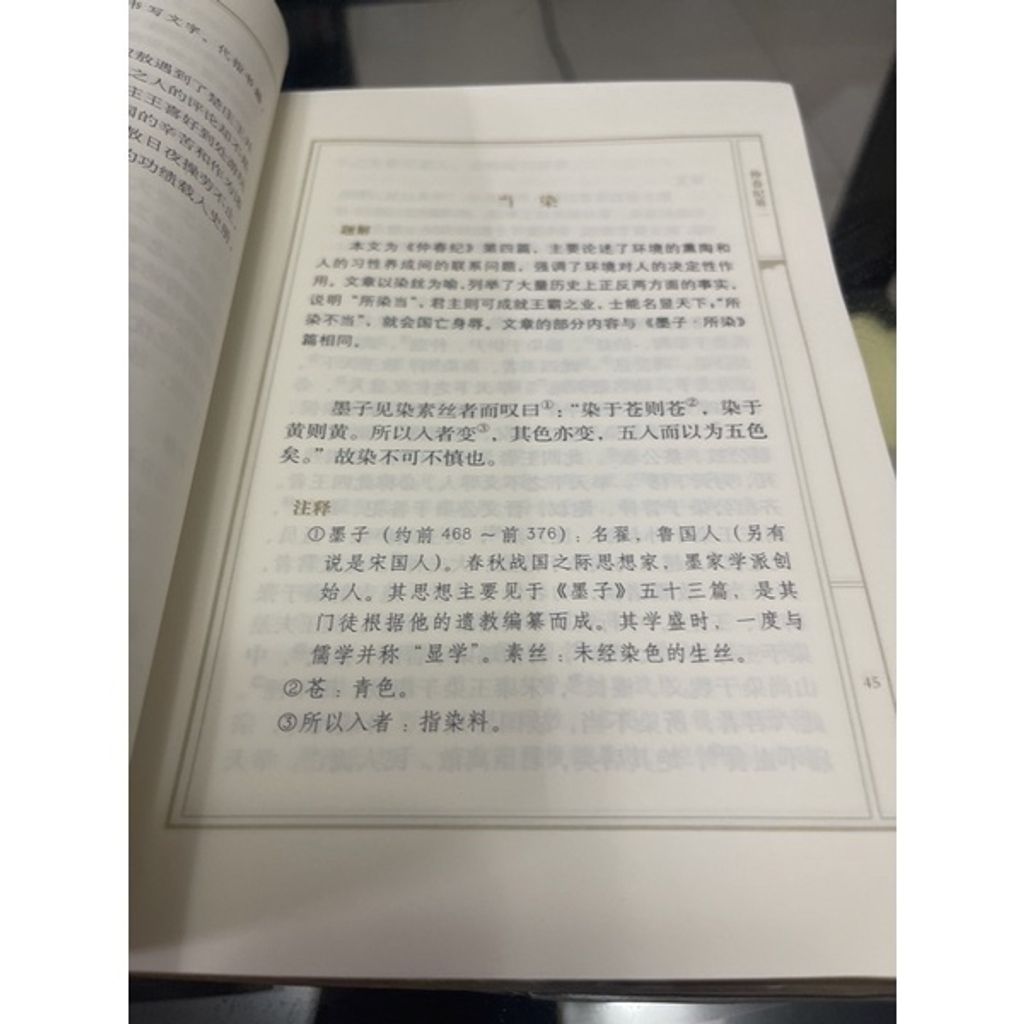 当 染
题解
本文为《仲春纪》第四篇，主要论述了环境的熏陶和
人的习性养成间的联系问题，强调了环境对人的决定性作
用。文章以染丝为喻，列举了大量历史上正反两方面的事实，
说明“所染当”，君主则可成就王霸之业，士能名显天下，“所
染不当”，就会国亡身辱。文章的部分内容与《墨子·所染》
篇相同。
墨子见染素丝者而叹曰①：“染于苍则苍②，染于
黄则黄。所以入者变③，其色亦变，五入而以为五色
矣。”故染不可不慎也。
注释
①墨子（约前 468 ～前 376）：名翟，鲁国人（另有
说是宋国人）。春秋战国之际思想家，墨家学派创
始人。其思想主要见于《墨子》五十三篇，是其
门徒根据他的遗教编纂而成。其学盛时，一度与
儒学并称“显学”。素丝：未经染色的生丝。
②苍：青色。
③所以入者：指染料。
仲春纪第二
45